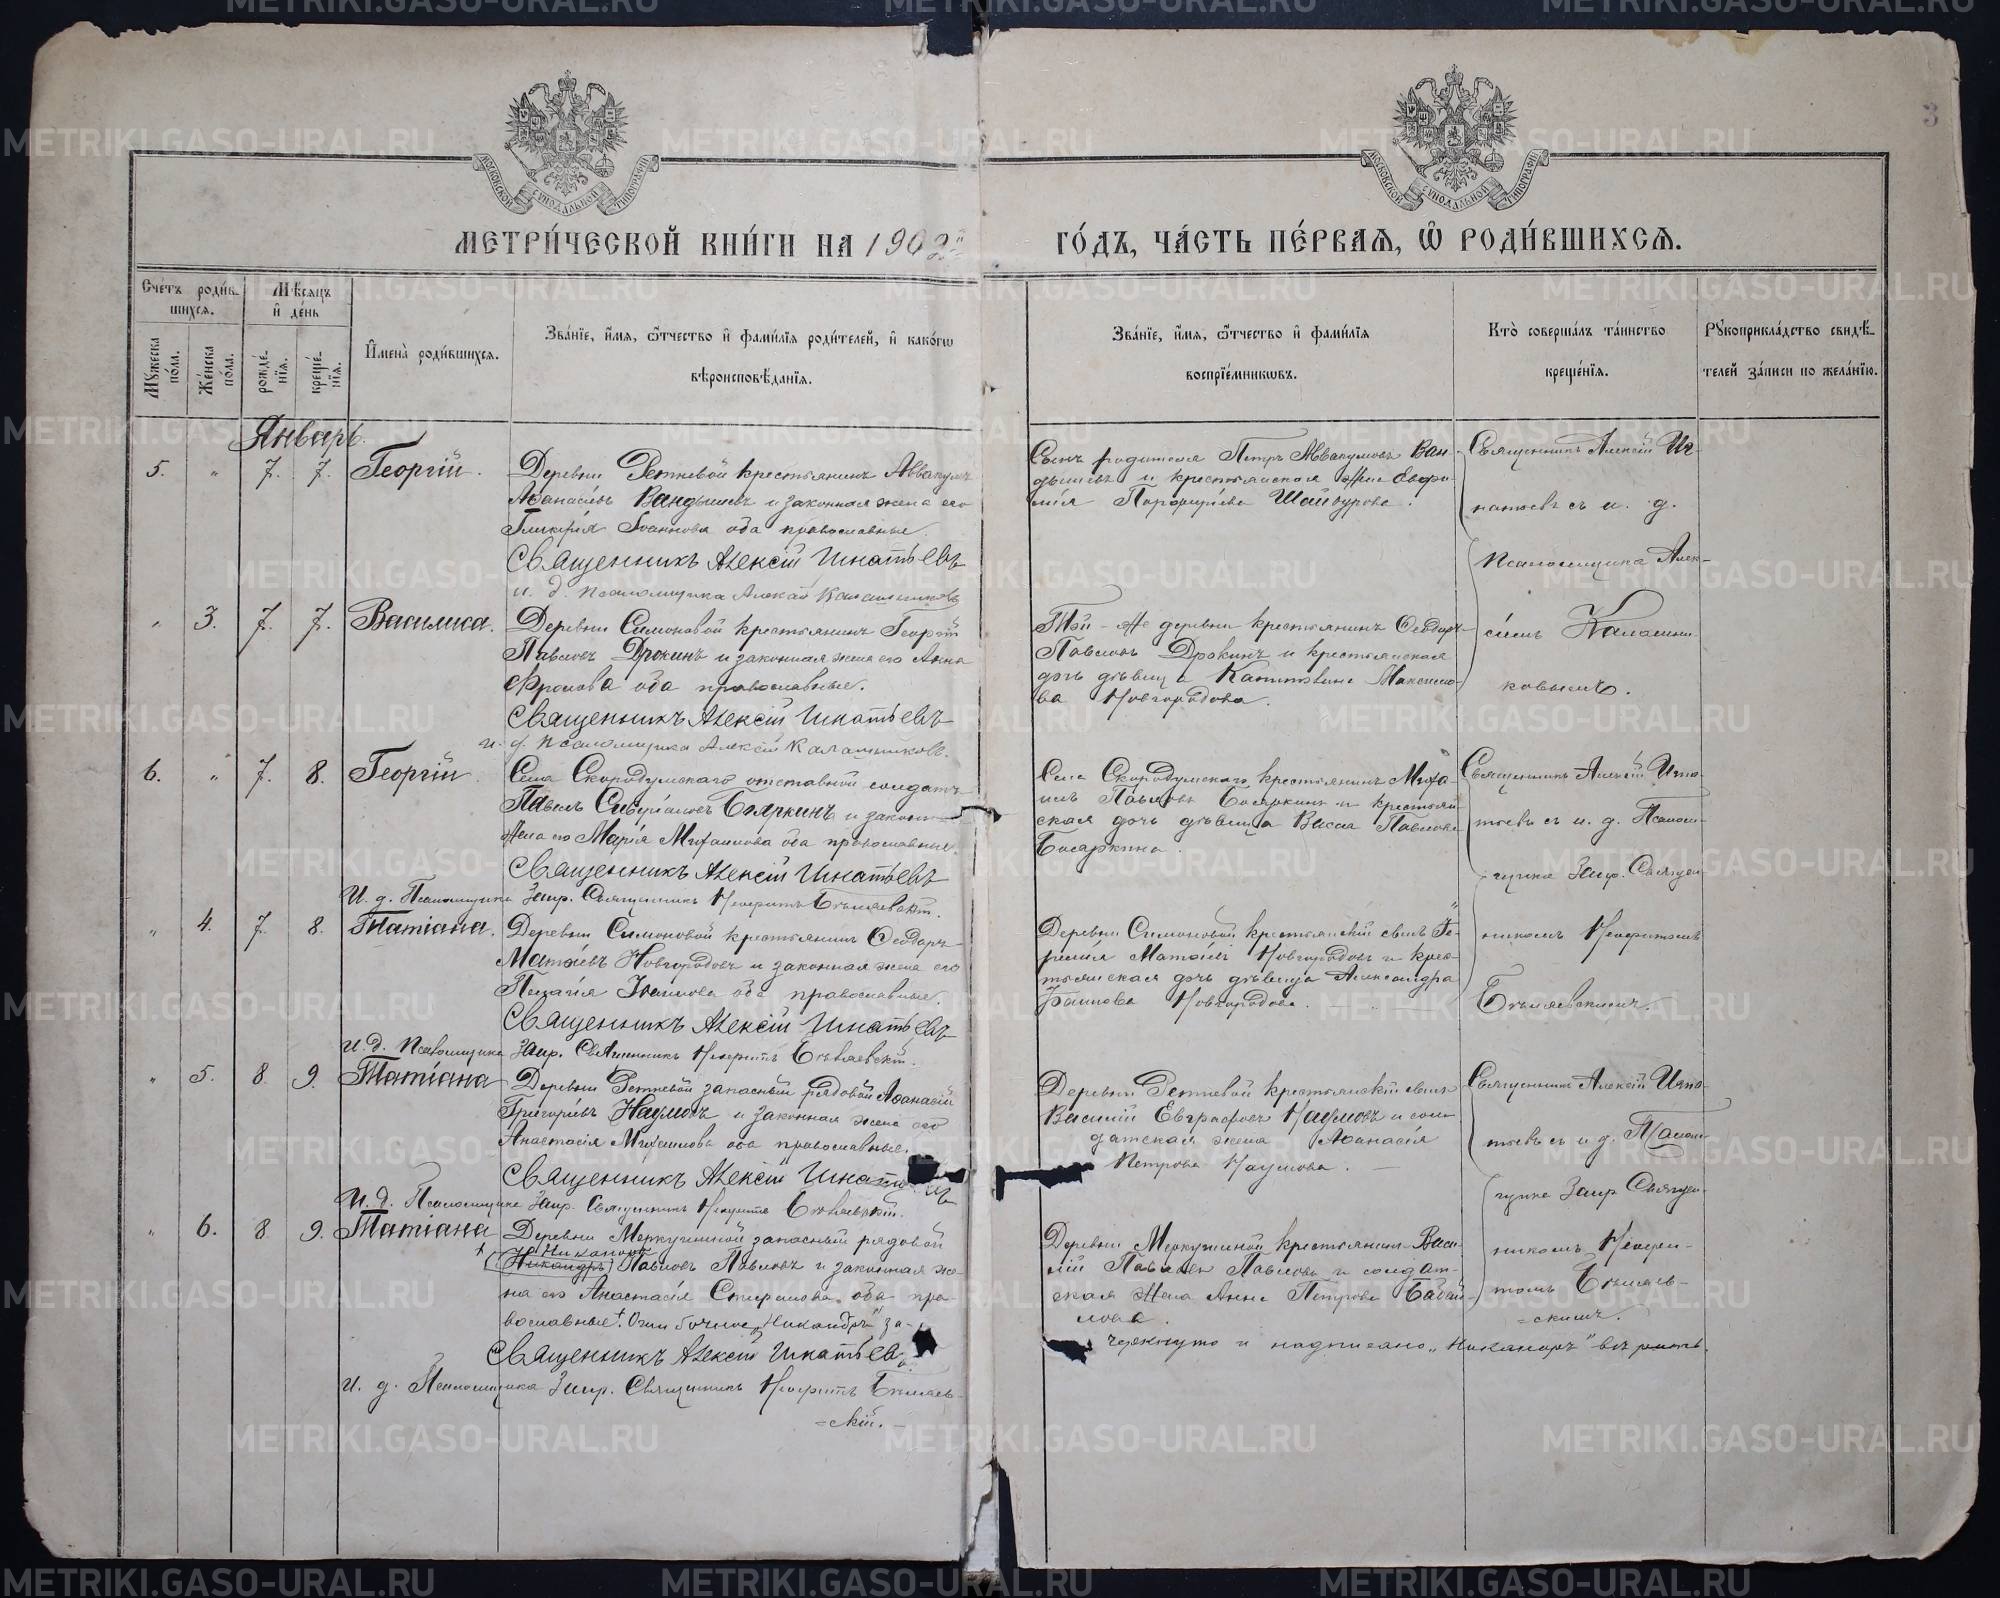 3
МОСКОВСКОЙ СѴНОДАЛЬНОЙ ТИПОГРАФІИ
МОСКОВСКОЙ СѴНОДАЛЬНОЙ ТИПОГРАФІИ
МЕТРИ́ЧЕСКОЙ КНИ́ГИ НА 190
ГО́ДЪ, ЧА́СТЬ ПЕ́РВАѦ, Ѽ РОДИ́ВШИХСѦ.
Сче́тъ роди́в-
шихсѧ.
Мꙋ́жеска по́ла.
Же́нска по́ла.
Мѣ́сѧцъ и҆ де́нь
рожде́-нїѧ.
креще́-нїѧ.
И҆мена̀ роди́вшихсѧ.
Зва́нїе, и҆́мѧ, ѻ҆́тчество и҆ фами́лїѧ роди́телей, и҆ како́гѡ
вѣроисповѣ́данїѧ.
Зва́нїе, и҆́мѧ, ѻ҆́тчество и҆ фами́лїѧ
воспрїе́мникѡвъ.
Кто̀ соверша́лъ та́инство
креще́нїѧ.
Рꙋкоприкла́дство свидѣ́-
телей за́писи по жела́нїю.
Январь.
5. " 7. 7. Георгій.
Деревни Ретневой крестьянинъ Аввакумъ
Аѳанасіевъ Вандышевъ и законная жена его
Гликерія Іоаннова оба православные.
Священникъ Алексій Игнатьевъ
и. д. псаломщика Алексій Калашниковъ
Сынъ родителя Петръ Аввакумовъ Ван-
дышевъ и крестьянская жена Евфи-
мія Порфирьева Шайдурова.
Священникъ Алексій Иг-
натьевъ съ и. д.
Псаломщика Алек-
сіемъ Калашни-
ковымъ.
" 3. 7. 7. Василиса.
Деревни Симоновой крестьянинъ Георгій
Павловъ Дрокинъ и законная жена его Анна
Фролова оба православные.
Священникъ Алексій Игнатьевъ
и. д. псаломщика Алексій Калашниковъ.
Той-же деревни крестьянинъ Ѳеодоръ
Павловъ Дрокинъ и крестьянская
дочь дѣвица Максимо-
ва Новгородова.
6. " 7. 8. Георгій.
Села Скородумскаго отставной солдатъ
Павелъ Бояркинъ и законн
жена его Марія Михаилова оба православные.
Священникъ Алексій Игнатьевъ
И. д. Псаломщика Заир. Священникъ Неофитъ Бѣляевскій.
Села Скородумскаго крестьянинъ Миха-
илъ Павловъ Бояркинъ и крестьян
ская дочь дѣвица Васса Павлова
Бояркина.
Священникъ Алексій Игна-
тьевъ съ и. д. Псалом-
щика Заир. Священ-
никомъ Неофитомъ
Бѣляевскимъ.
" 4. 7. 8. Татіана.
Деревни Симоновой крестьянинъ Ѳеодоръ
Матѳіевъ Новгородовъ и законная жена его
Пелагія оба православные.
Священникъ Алексій Игнатьевъ
И. д. Псаломщика Заир. Священникъ Неофитъ Бѣляевскій.
Деревни Симоновой крестьянскій сынъ Іе-
ремія Новгородовъ и крес-
тьянская дочь дѣвица Александра
Новгородова.
" 5. 8. 9. Татіана
Деревни Ретневой запасный рядовой Аѳанасій
Григорьевъ Наумовъ и законная жена его
Анастасія Михаилова оба православные.
Священникъ Алексій
И. д. Псаломщика Заир. Священникъ Неофитъ Бѣляевскій.
Деревни Ретневой крестьянскій сынъ
Василій Евграфовъ Наумовъ и сол-
датская жена Аѳанасія
Петрова Наумова.
Священникъ Алексій Игна-
тьевъ съ и. д. Псалом-
щика Заир. Священ-
никомъ Неофи-
томъ Бѣляев-
=скимъ.
" 6. 8. 9. Татіана
Деревни Меркушиной запасный рядовой
Никаноръ
(Никандръ) Павловъ Павловъ и законная же-
на его Анастасія оба пра-
вославные. Ошибочное „Никандръ" за-
Священникъ Алексій Игнатьевъ
И. д. Псаломщика Заир. Священникъ Неофитъ Бѣляев-
=скій.
Деревни Меркушиной крестьянинъ Васи-
лій Павловъ Павловъ и солдат-
ская жена Анна Петрова
лова.
черкнуто и надписано „Никаноръ"
METRIKI.GASO-URAL.RU